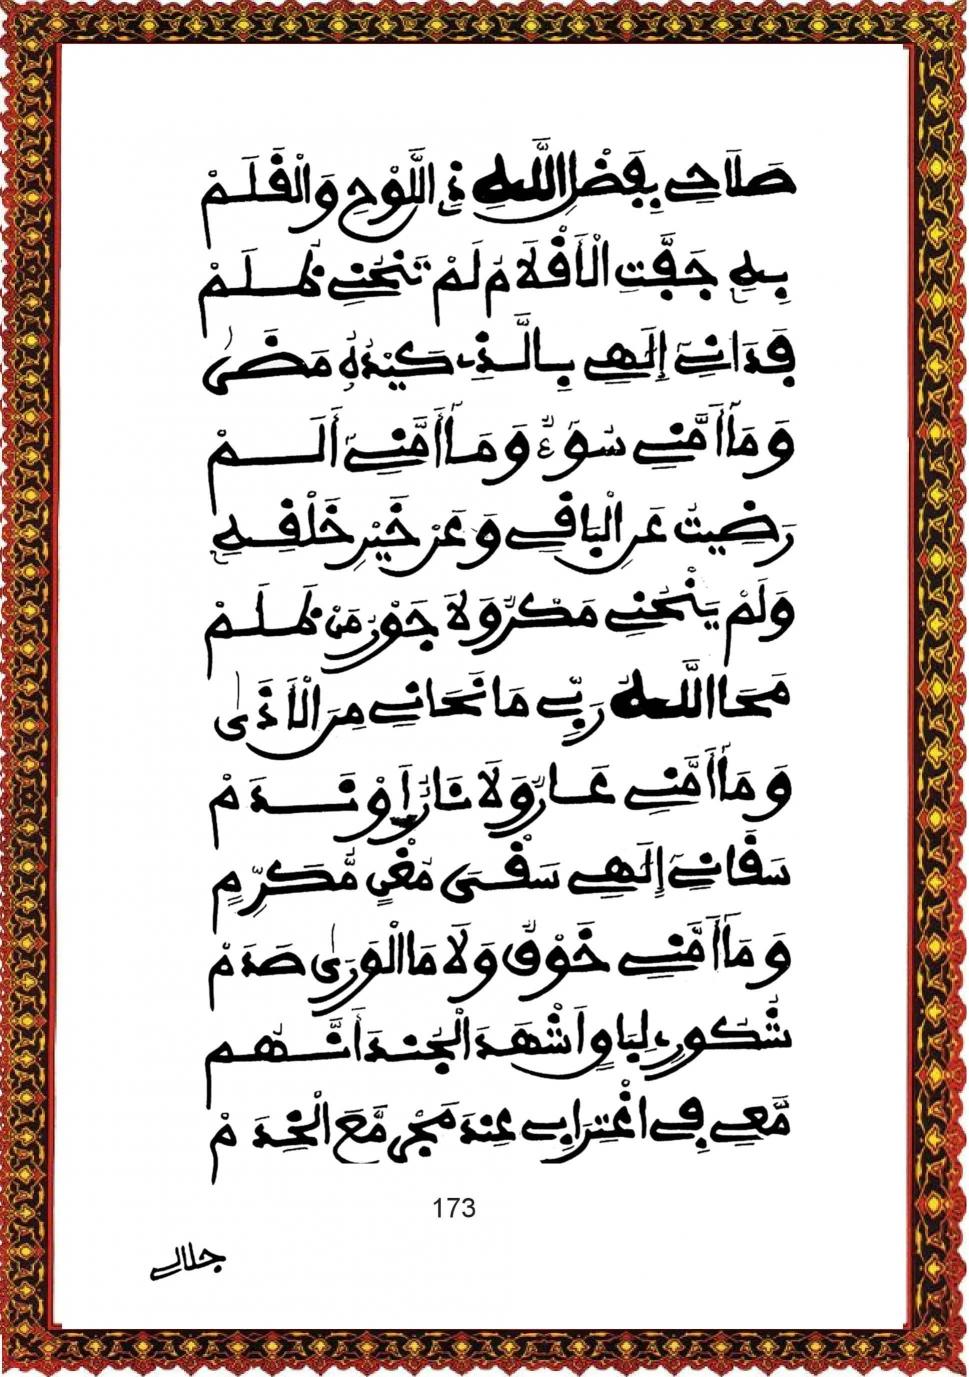 صَلَاحِي بِفَضْلِ اللَّهِ فِي اللَّوْحِ وَالْقَلَمْ
بِهِ جَفَّتِ الْأَقْلَامُ لَمْ تَنْحُنِي ظُلَمْ
فَدَانِي إِلَهِي بِالَّذِي كَيْدُهُ مَضَى
وَمَا أَمَّنِي سُوءٌ وَمَا أَمَّنِي أَلَمْ
رَضِيتُ عَنِ الْبَاقِي وَعَنْ خَيْرِ خَلْقِهِ
وَلَمْ يَنْحُنِي مَكْرٌ وَلَا جَوْرُ مَنْ ظَلَمْ
مَحَا اللَّهُ رَبِّي مَا نَحَانِي مِنَ الْأَذَى
وَمَا أَمَّنِي عَارٌ وَلَا نَارٌ أَوْ نَدَمْ
سَقَانِي إِلَهِي سَقْيَ مُغْنٍ مُّكَرِّمٍ
وَمَا أَمَّنِي خَوْفٌ وَلَا مَا الْوَرَى صَدَمْ
شُكُورِي لِبَاقٍ أَشْهَدَ الْجُنْدَ أَنَّهُم
مَّعِي فِي اغْتِرَابِي عِنْدَ مَجْرٍ مَّعَ الْخَدَمْ
173
جلالي